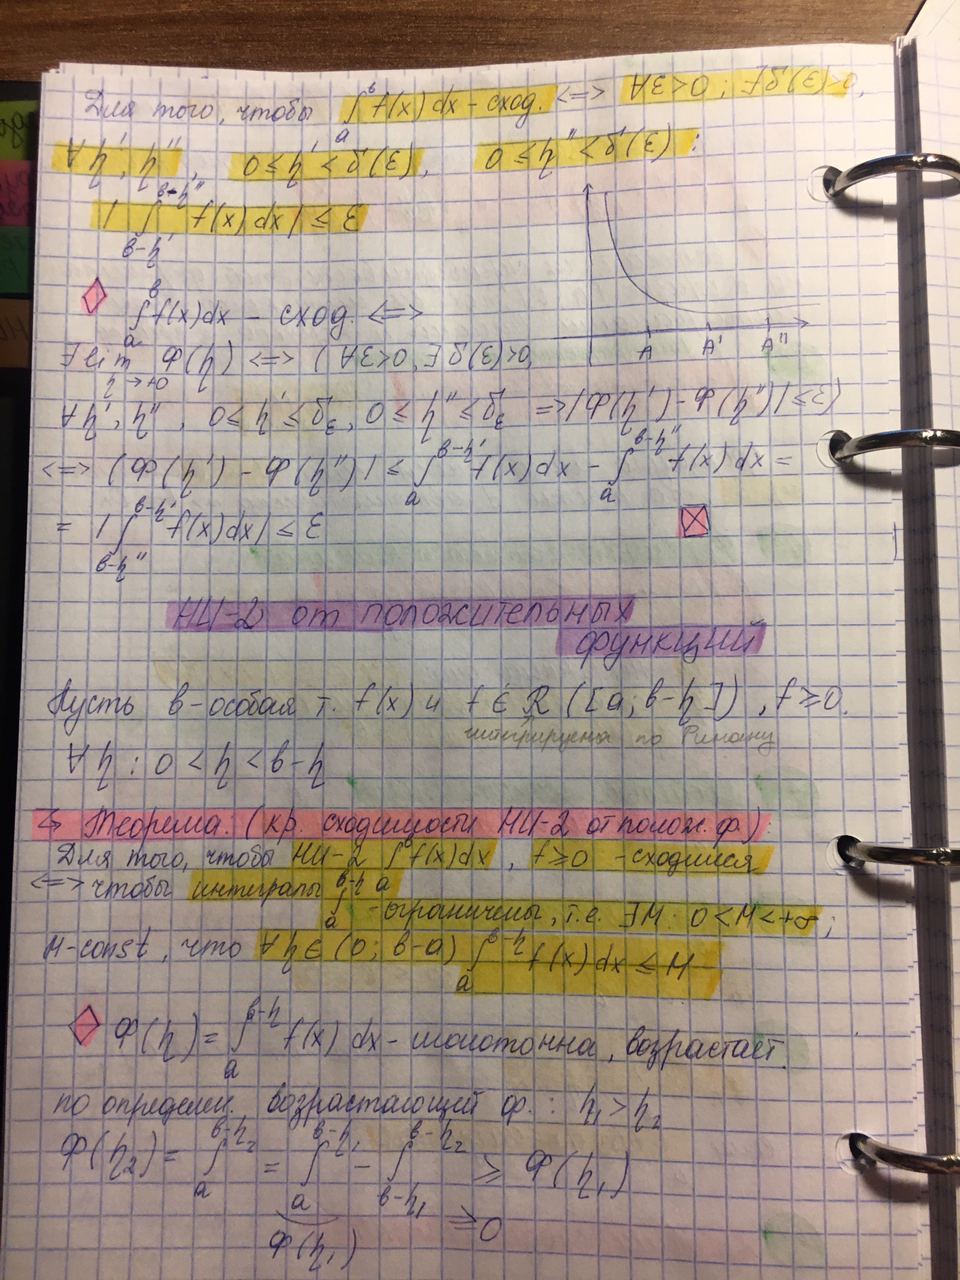 Для того, чтобы ∫ₐᵇ f(x)dx – сход. <=> ∀ε>0; ∃δ(ε)>0,
∀η', η'', 0≤η'<δ(ε), 0≤η''<δ(ε):
|∫_{b-η'}^{b-η''} f(x)dx| ≤ ε
∫ₐᵇ f(x)dx – сход. <=>
∃lim_{η→+0} Ф(η) <=> (∀ε>0, ∃δ(ε)>0,
∀η', η'', 0≤η'≤δ_ε, 0≤η''≤δ_ε => |Ф(η')-Ф(η'')|≤ε)
<=> (Ф(η')-Ф(η'')| ≤ ∫ₐ^{b-η'} f(x)dx - ∫ₐ^{b-η''} f(x)dx =
= |∫_{b-η''}^{b-η'} f(x)dx| ≤ ε
A A' A''
НИ-2 от положительных
функций
Пусть b-особая т. f(x) и f ∈ R ([a; b-η]), f≥0.
интегрируема по Риману
∀η: 0<η<b-η
↳ Теорема. (кр. сходимости НИ-2 от полож. ф.):
Для того, чтобы НИ-2 ∫ₐᵇ f(x)dx, f≥0 – сходился
<=> чтобы интегралы ∫ₐ^{b-η}
- ограничены, т.е. ∃M: 0<M<+∞;
M-const, что ∀η∈(0; b-a) ∫ₐ^{b-η} f(x)dx ≤ M
Ф(η) = ∫ₐ^{b-η} f(x) dx – монотонна, возрастает.
по определен. возрастающей ф.: η₁>η₂
Ф(η₂) = ∫ₐ^{b-η₂} = ∫ₐ^{b-η₁} - ∫_{b-η₁}^{b-η₂} ≥ Ф(η₁)
Ф(η₁) ≥0